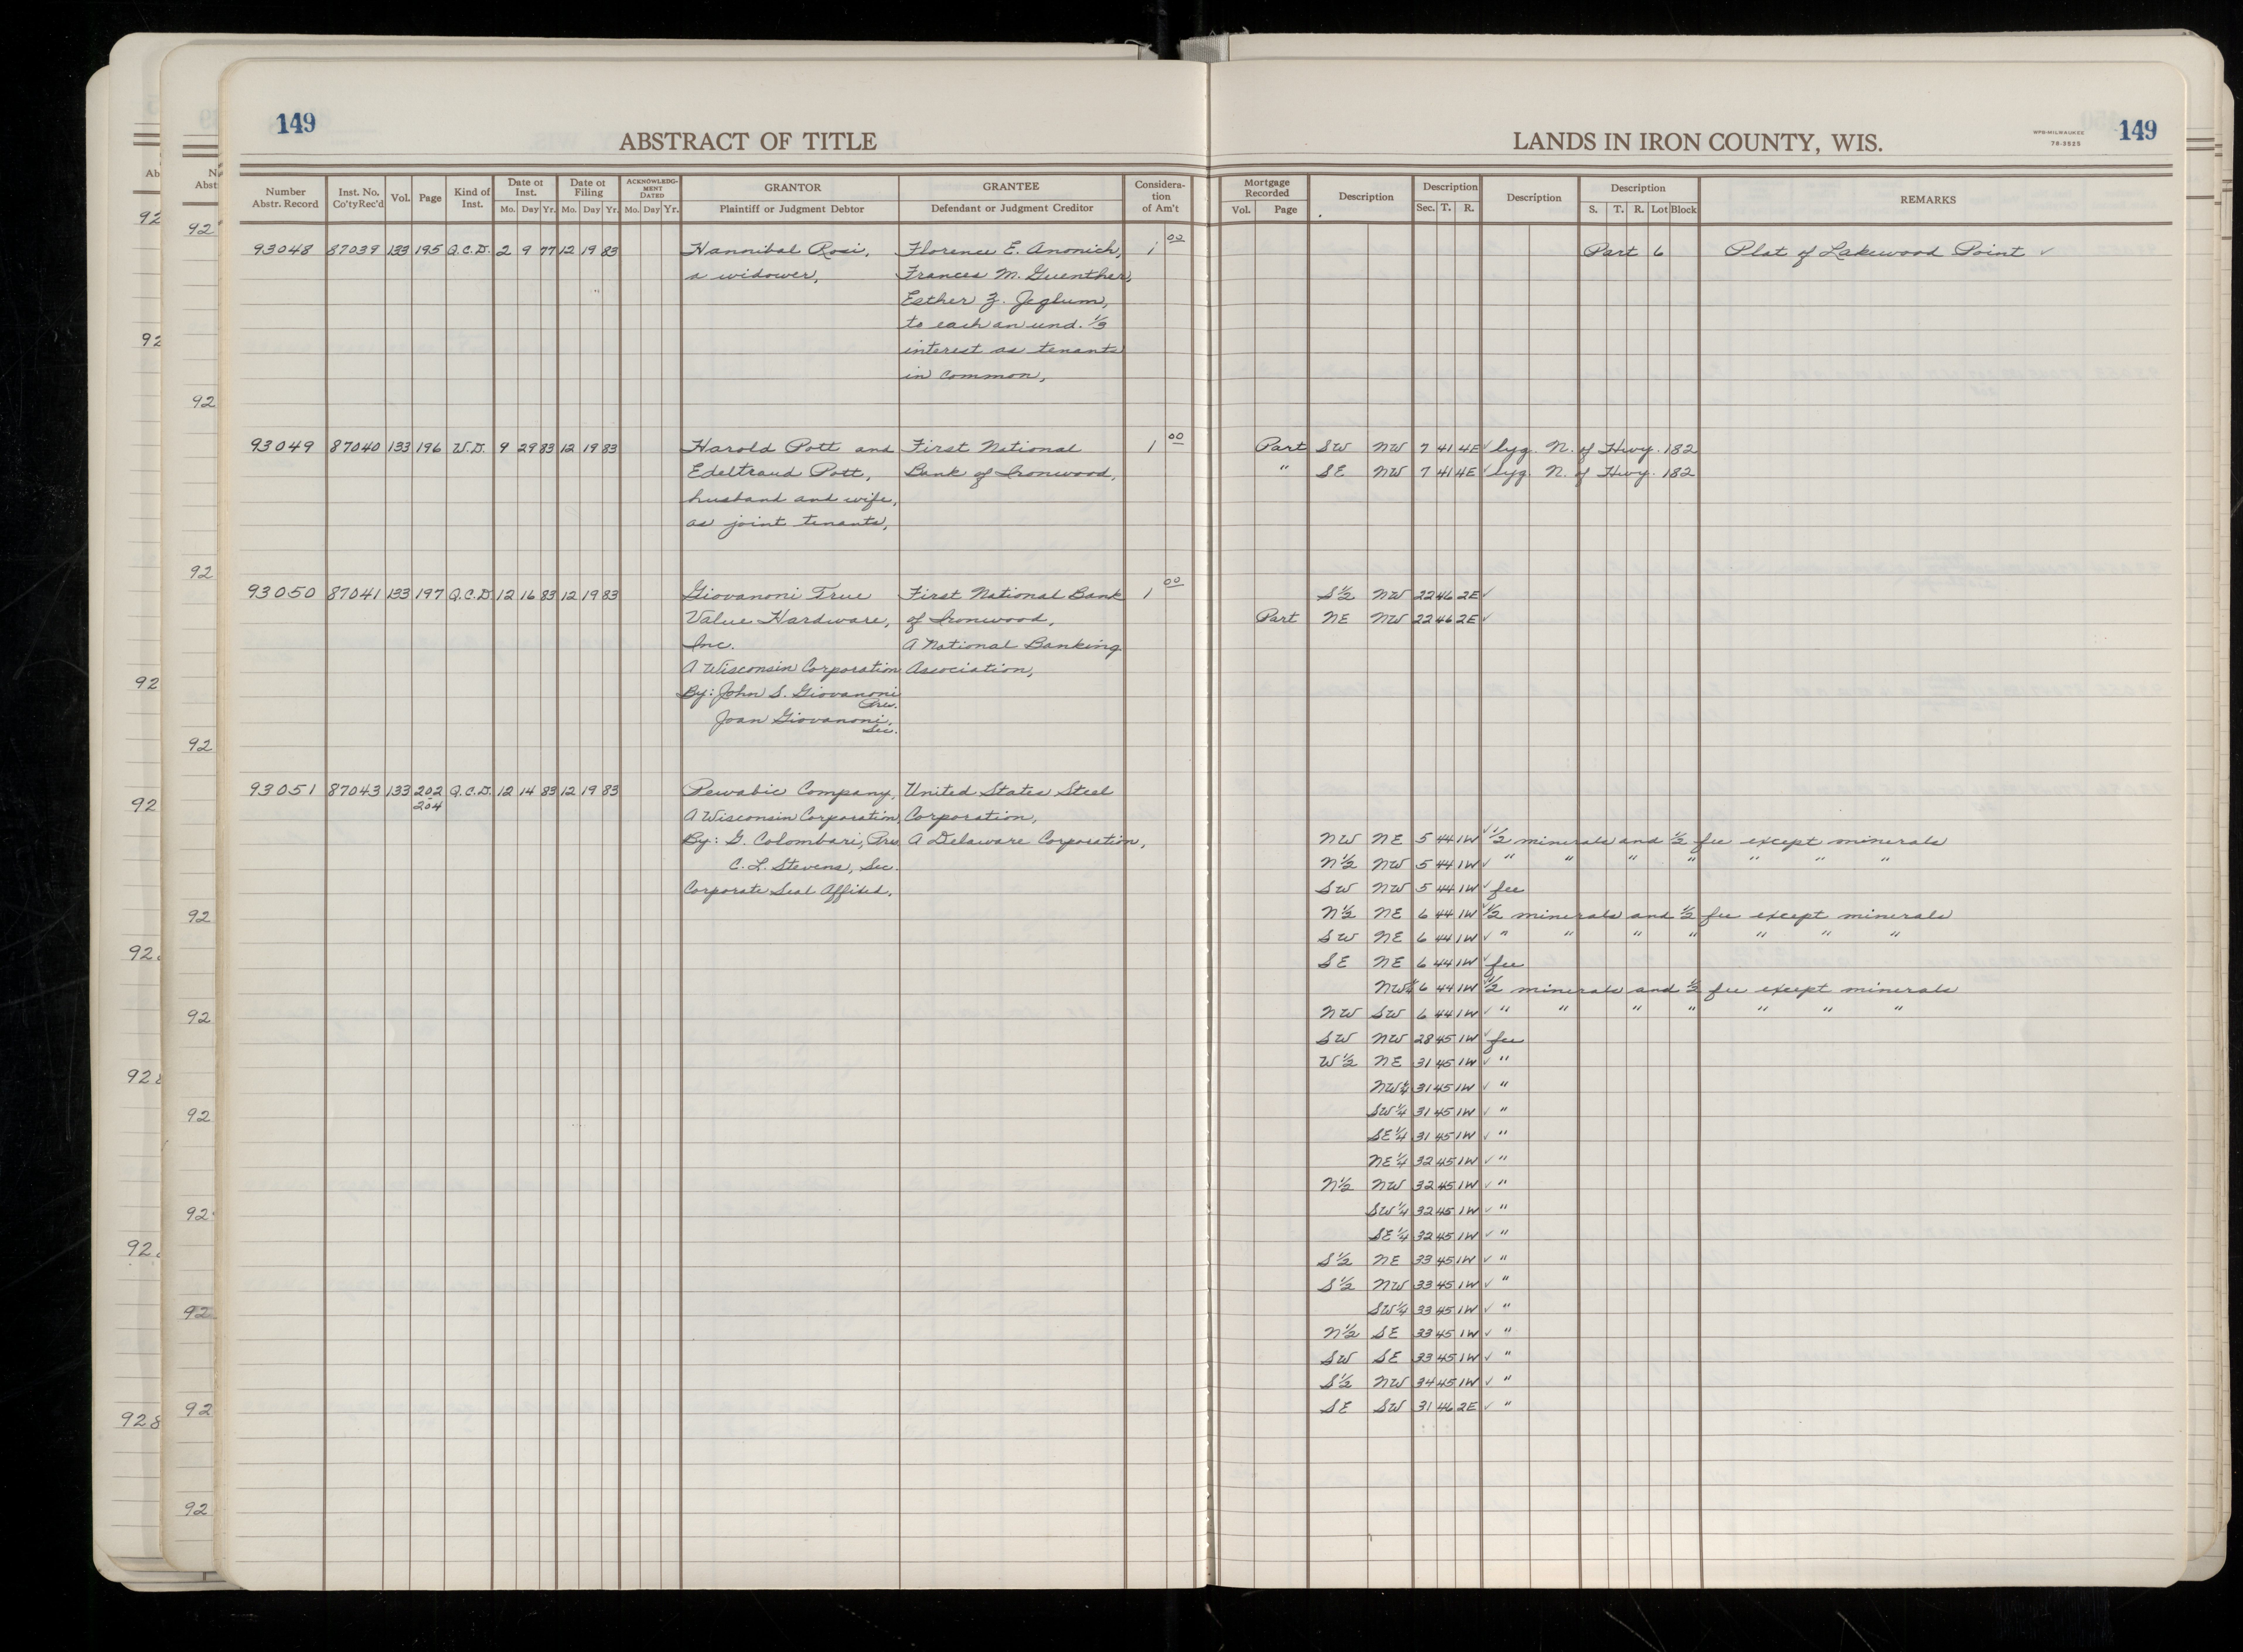 149
ABSTRACT OF TITLE
Number Abstr. Record | Inst. No. Co'ty Rec'd | Vol. | Page | Kind of Inst. | Date of Inst. Mo. Day Yr. | Date of Filing Mo. Day Yr. | ACKNOWLEDGMENT DATED Mo. Day Yr. | GRANTOR Plaintiff or Judgment Debtor | GRANTEE Defendant or Judgment Creditor | Consideration of Am't
93048 87039 133 195 Q.C.D. 2 9 77 12 19 83 Hannibal Rosi, Florence E. Anonich, 1 00
a widower, Frances M. Guenther,
Esther Z. Jeglum,
to each an und. 1/3
interest as tenants
in common,
93049 87040 133 196 W.D. 9 29 83 12 19 83 Harold Pott and First National 1 00
Edeltraud Pott, Bank of Ironwood,
husband and wife,
as joint tenants,
93050 87041 133 197 Q.C.D. 12 16 83 12 19 83 Giovanoni True First National Bank 1 00
Value Hardware, of Ironwood,
Inc. A National Banking
A Wisconsin Corporation Association,
By: John S. Giovanoni
Pres.
Joan Giovanoni,
Sec.
93051 87043 133 202 Q.C.D. 12 14 83 12 19 83 Pewabic Company, United States Steel
204
A Wisconsin Corporation, Corporation,
By: G. Colombari, Pres. A Delaware Corporation,
C. L. Stevens, Sec.
Corporate Seal Affixed.
LANDS IN IRON COUNTY, WIS.
WPB-MILWAUKEE
78-3525
149
Mortgage Recorded Vol. Page | Description | Description Sec. T. R. | Description | Description S. T. R. Lot Block | REMARKS
Part 6 Plat of Lakewood Point ✓
Part SW NW 7 41 4E ✓ lyg. N. of Hwy. 182
" SE NW 7 41 4E ✓ lyg. N. of Hwy. 182
S½ NW 22 46 2E ✓
Part NE NW 22 46 2E ✓
NW NE 5 44 1W ✓ ½ minerals and ½ fee except minerals
N½ NW 5 44 1W ✓ " " " " " " "
SW NW 5 44 1W ✓ fee
N½ NE 6 44 1W ✓ ½ minerals and ½ fee except minerals
SW NE 6 44 1W ✓ " " " " " " "
SE NE 6 44 1W ✓ fee
NW¼ 6 44 1W ✓ ½ minerals and ½ fee except minerals
NW SW 6 44 1W ✓ " " " " " " "
SW NW 28 45 1W ✓ fee
W½ NE 31 45 1W ✓ "
NW¼ 31 45 1W ✓ "
SW¼ 31 45 1W ✓ "
SE¼ 31 45 1W ✓ "
NE¼ 32 45 1W ✓ "
N½ NW 32 45 1W ✓ "
SW¼ 32 45 1W ✓ "
SE¼ 32 45 1W ✓ "
S½ NE 33 45 1W ✓ "
S½ NW 33 45 1W ✓ "
SW¼ 33 45 1W ✓ "
N½ SE 33 45 1W ✓ "
SW SE 33 45 1W ✓ "
S½ NW 34 45 1W ✓ "
SE SW 31 46 2E ✓ "